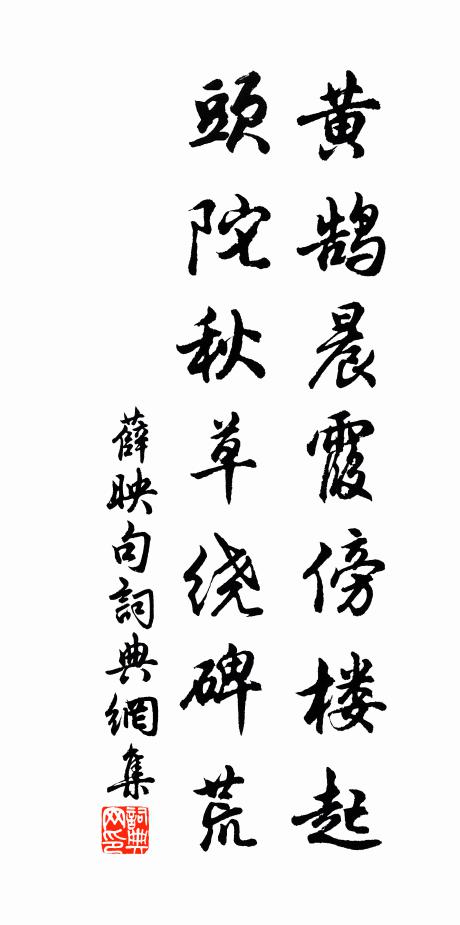 黄鹄晨霞傍楼起
頭陀秋草绕碑荒
薛映句詞典網集
詞典网印